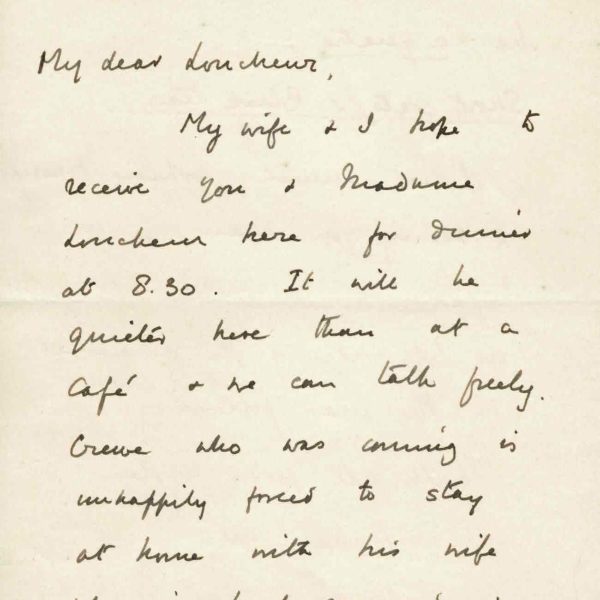 My dear Loucheur,
My wife & I hope to
receive you & Madame
Loucheur here for dinner
at 8.30. It will be
quieter here than at a
Café & we can talk freely.
Crewe who was coming is
unhappily forced to stay
at home with his wife